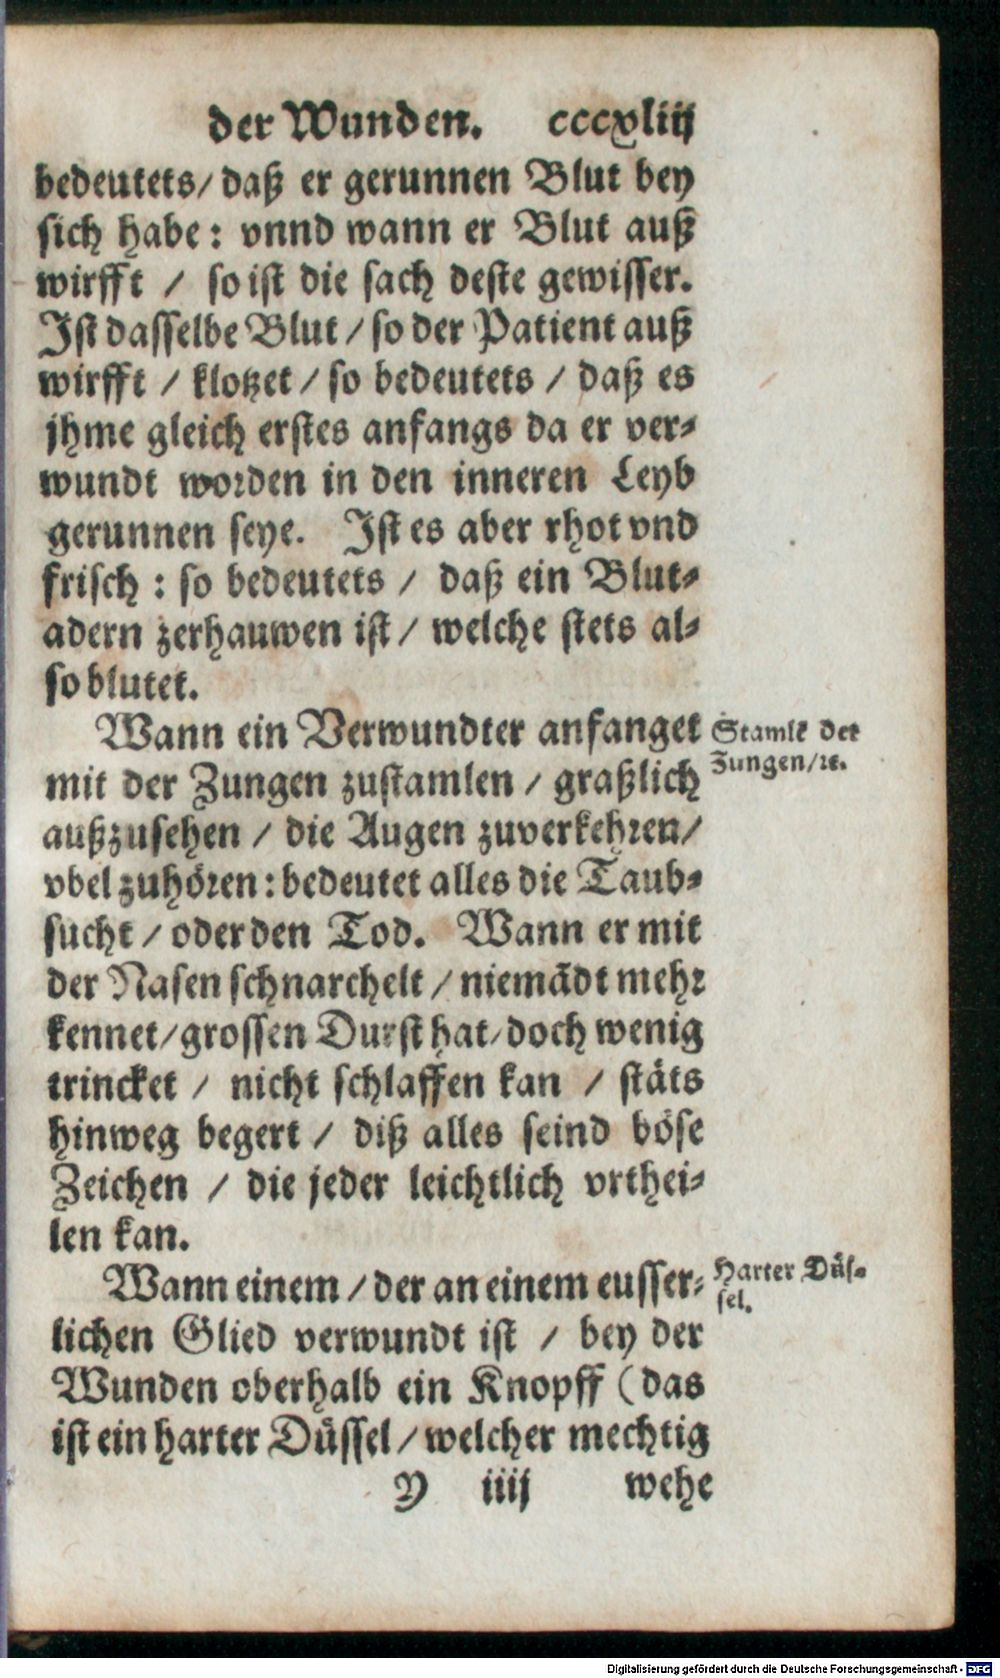 der Wunden. cccxliij
bedeutets/ daß er gerunnen Blut bey
sich habe: vnnd wann er Blut auß
wirfft / so ist die sach deste gewisser.
Ist dasselbe Blut / so der Patient auß
wirfft / klotzet / so bedeutets / daß es
jhme gleich erstes anfangs da er ver-
wundt worden in den inneren Leyb
gerunnen seye. Ist es aber rhot vnd
frisch : so bedeutets / daß ein Blut-
adern zerhauwen ist / welche stets al-
so blutet.
Wann ein Verwundter anfanget
Stamlē der
mit der Zungen zustamlen / graßlich
Zungen/ꝛc.
außzusehen / die Augen zuverkehren/
vbel zuhören: bedeutet alles die Taub-
sucht / oder den Tod. Wann er mit
der Nasen schnarchelt / niemādt mehr
kennet/grossen Durst hat/doch wenig
trincket / nicht schlaffen kan / stäts
hinweg begert / diß alles seind böse
Zeichen / die jeder leichtlich vrthei-
len kan.
Wann einem / der an einem eusser-
Harter Düs-
lichen Glied verwundt ist / bey der
sel.
Wunden oberhalb ein Knopff (das
ist ein harter Düssel / welcher mechtig
Y iiij wehe
Digitalisierung gefördert durch die Deutsche Forschungsgemeinschaft - DFG